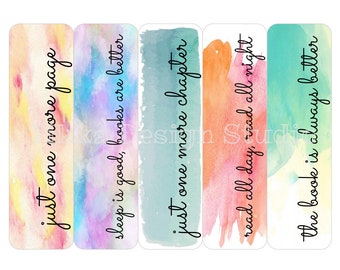 just one more page
sleep is good, books are better
just one more chapter
read all day, read all night
the book is always better
Design Studio